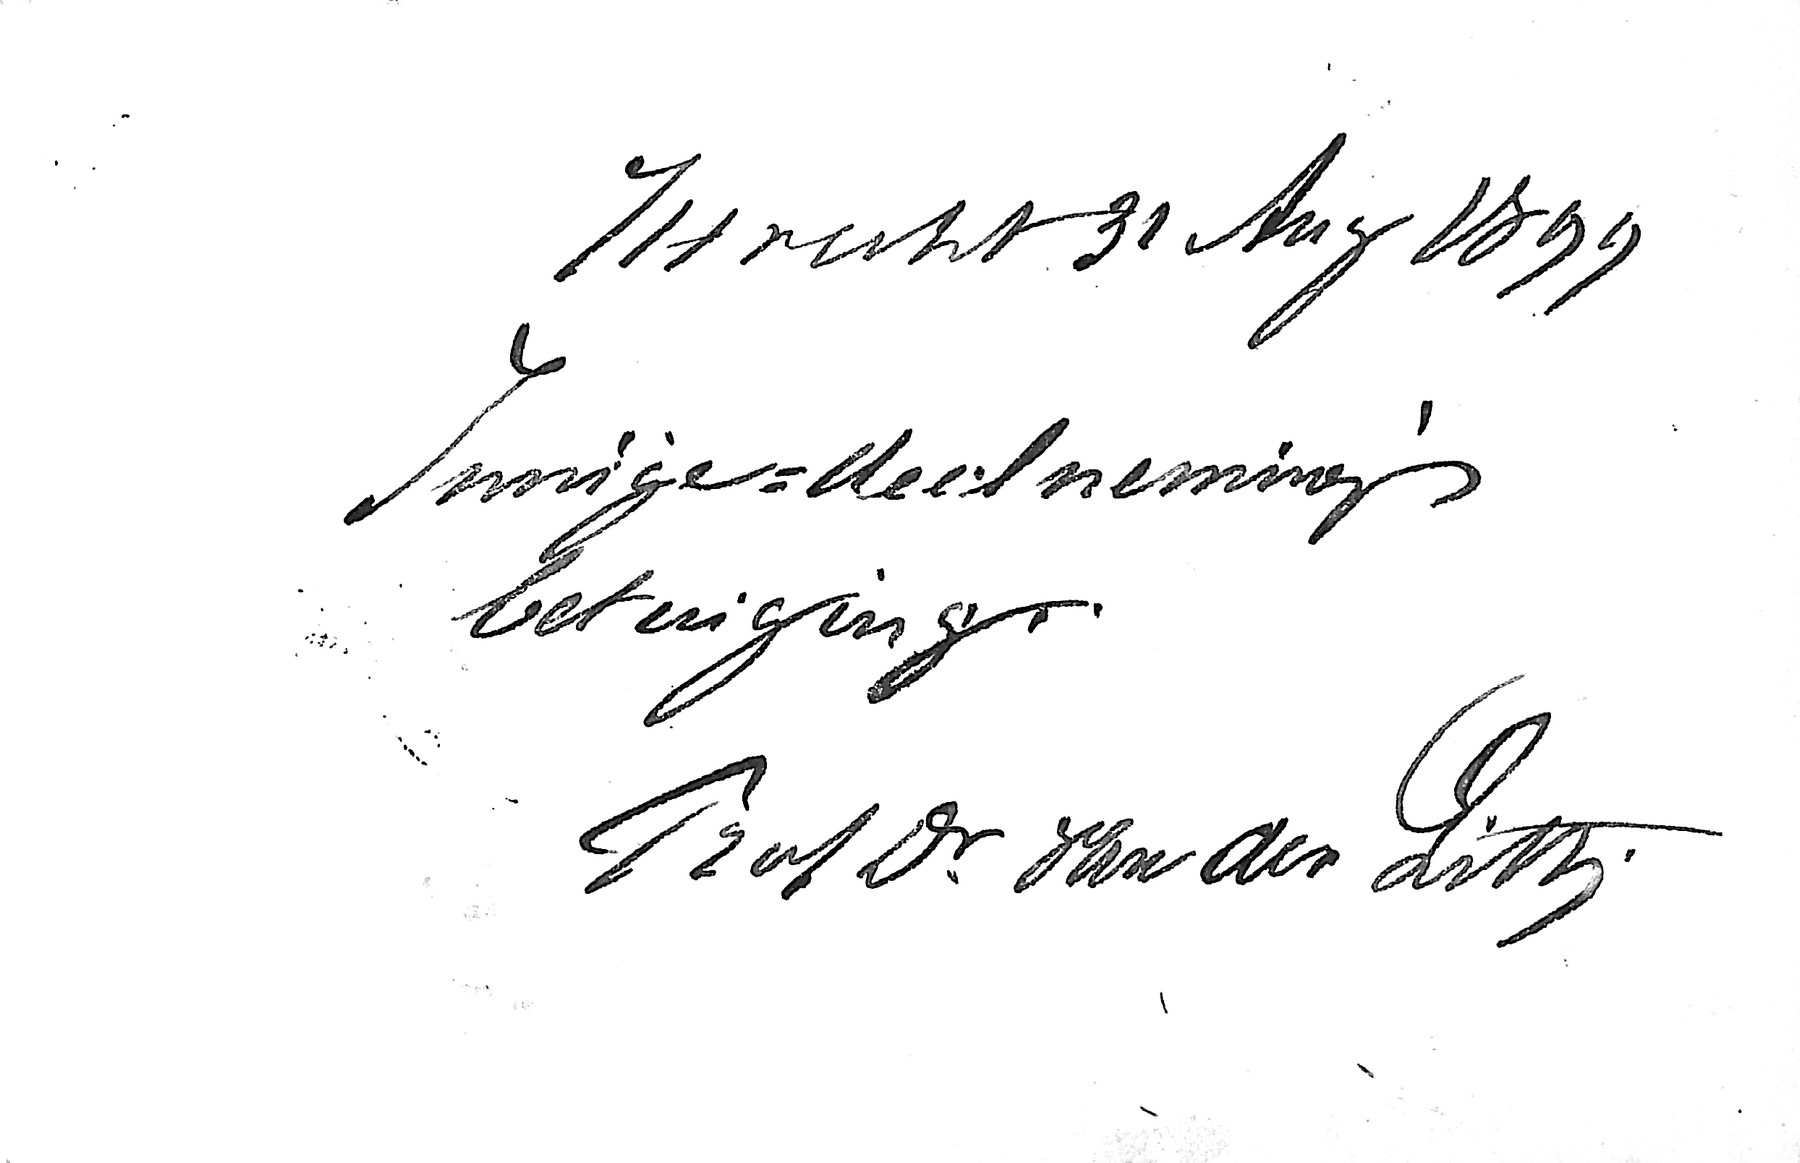 Utrecht 31 Aug 1899
Innige=deelnemings
betuiging.
Prof Dr. van der Lith.